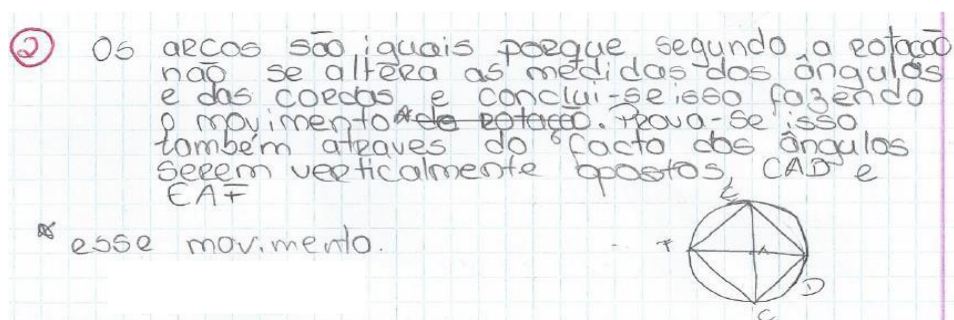 ② Os arcos são iguais porque segundo a rotação
não se altera as medidas dos ângulos
e das cordas e conclui-se isso fazendo
o movimento * de rotação. Prova-se isso
também atraves do facto dos ângulos
serem verticalmente opostos, CAD e
EAF
* esse movimento.
E
F
A
D
C